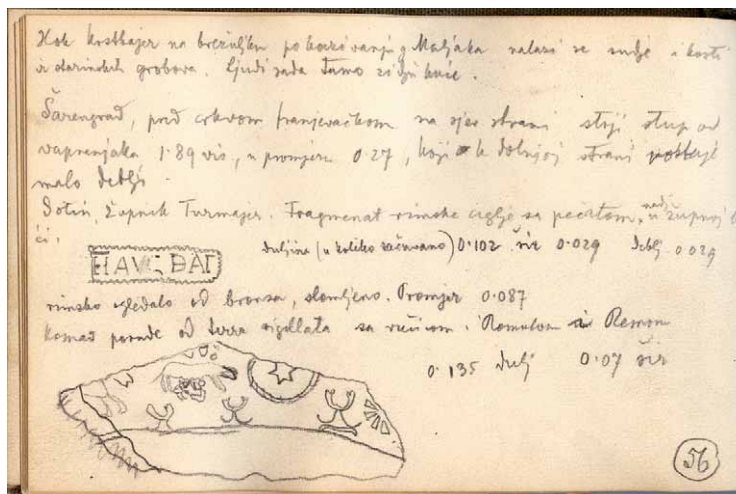 Kod na brežuljku po kazivanju g Maljaka nalazi se suđe i kosti
iz starinskih grobova. Ljudi sada tamo zidju kuće.
Šarengrad, pred crkvom franjevačkom na sjev strani stoji stup od
vapnenjaka 1·89 vis, u promjeru 0·27, koji k dolnjoj strani
malo deblji.
Sotin, župnik Turmajer. Fragmenat rimske ciglje sa pečatom, u župnoj
ći.
duljina (u koliko sačuvano) 0·102 šir 0·029 deblj 0·029
rimsko ogledalo od bronsa, slomljeno. Promjer 0·087
komad posude od terra sigillata sa vučicom i Romulom i Remom
0·135 dulj 0·07 šir
56